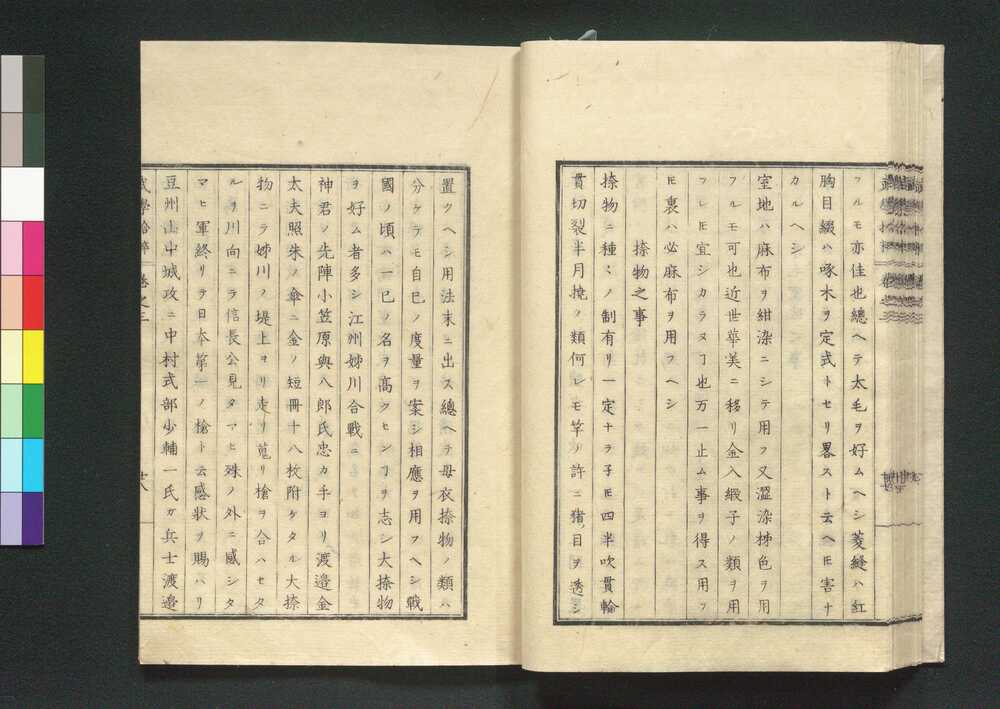 フルモ亦佳也總ヘテ太毛ヲ好ムヘシ菱縫ハ紅
胸目綴ハ啄木ヲ定式トセリ畧スト云ヘ𪜈害ナ
カルヘシ
室地ハ麻布ヲ紺染ニシテ用フ又澀染柹色ヲ用
フルモ可也近世華美ニ移リ金入緞子ノ類ヲ用
フレ𪜈宜シカラヌヿ也万一止ム事ヲ得ス用フ
𪜈裏ハ必麻布ヲ用フヘシ
捺物之事
捺物ニ種〻ノ制有リ一定ナラ子𪜈四半吹貫輪
貫切裂半月撓ノ類何レモ竿ノ許ニ猪ノ目ヲ透シ
置クヘシ用法末ニ出ス總ヘテ母衣捺物ノ類ハ
分ケテモ自己ノ度量ヲ案シ相應ヲ用フヘシ戰
國ノ頃ハ一己ノ名ヲ高クセンヿヲ志シ大捺物
ヲ好ム者多シ江州姉川合戰ニ
神君ノ先陣小笠原與八郎氏忠カ手ヨリ渡邉金
太夫照朱ノ傘ニ金ノ短冊十八枚附ケタル大捺
物ニテ姉川ノ堤上ヨリ走リ蒐リ槍ヲ合ハセタ
ルヲ川向ニテ信長公見タマヒ殊ノ外ニ感シタ
マヒ軍終リテ日本第一ノ槍ト云感狀ヲ賜ハリ
豆州山中城攻ニ中村式部少輔一氏ガ兵士渡邉
武學拾粹 卷之三 廿八